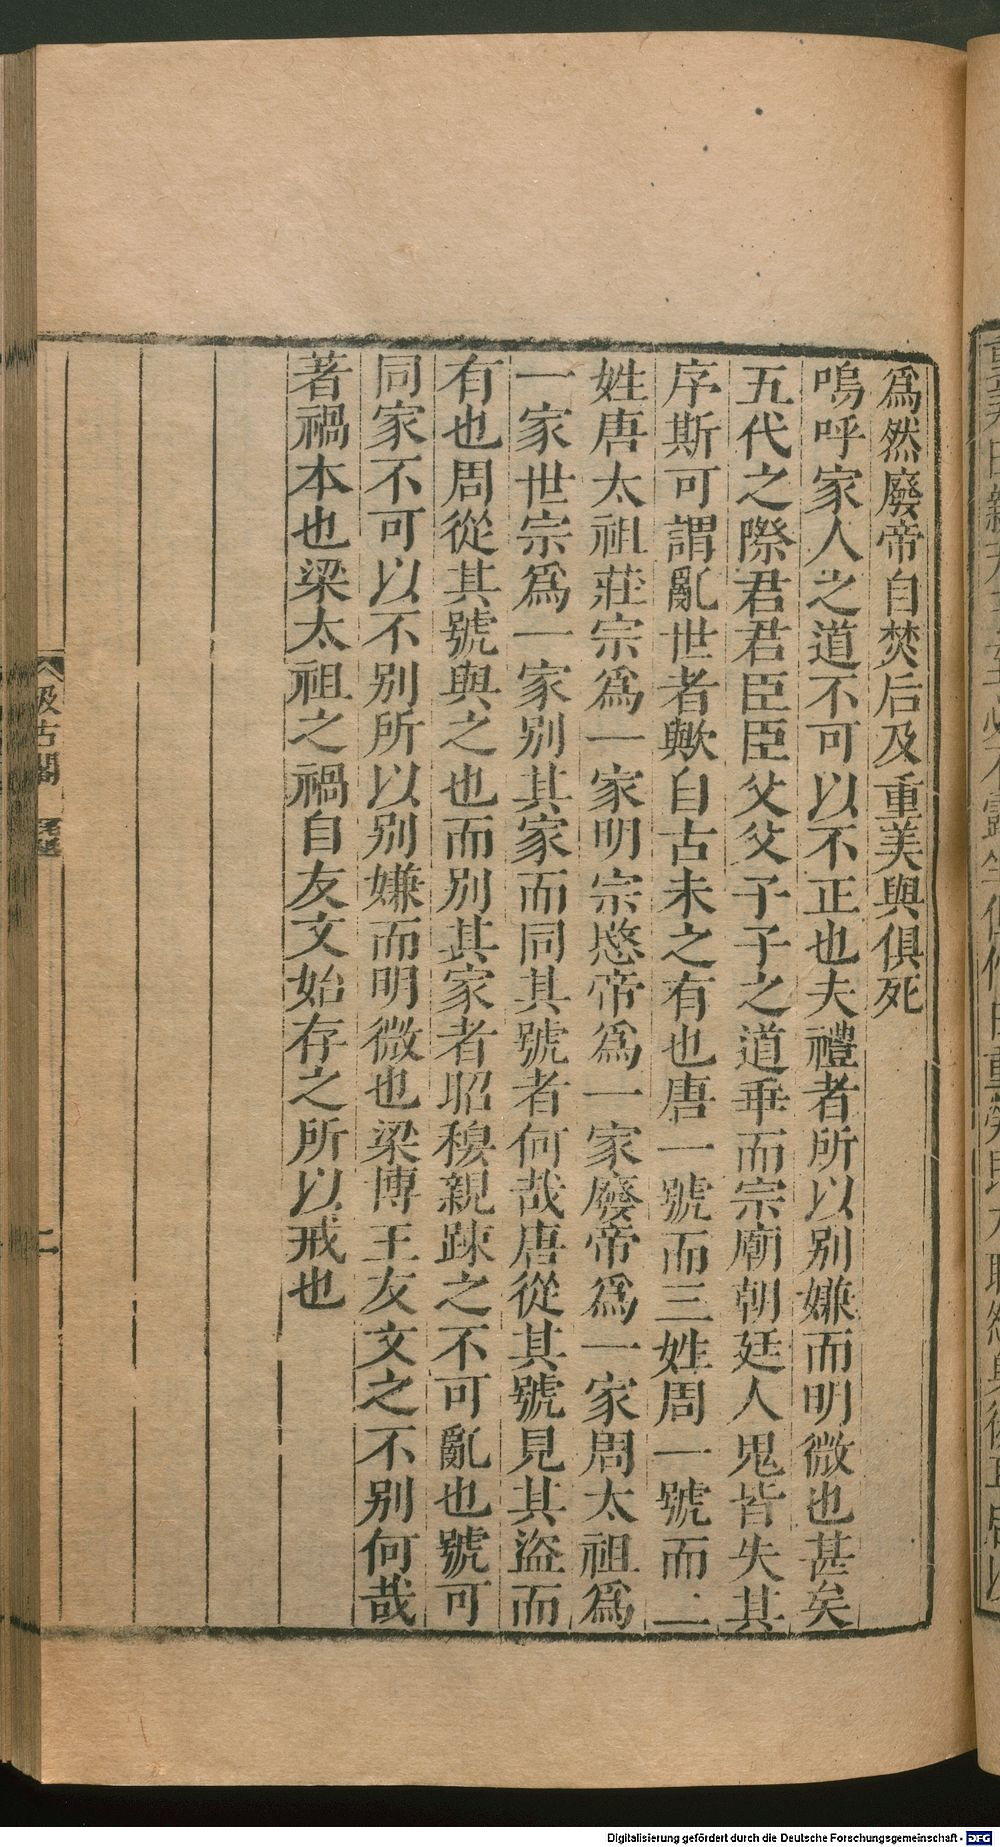 爲然廢帝自焚后及重美與俱死
嗚呼家人之道不可以不正也夫禮者所以别嫌而明微也甚矣
五代之際君君臣臣父父子子之道乖而宗廟朝廷人鬼皆失其
序斯可謂亂世者歟自古未之有也唐一號而三姓周一號而二
姓唐太祖莊宗爲一家明宗愍帝爲一家廢帝爲一家周太祖爲
一家世宗爲一家别其家而同其號者何哉唐從其號見其盜而
有也周從其號與之也而别其家者昭穆親踈之不可亂也號可
同家不可以不别所以别嫌而明微也梁博王友文之不别何哉
著禍本也梁太祖之禍自友文始存之所以戒也
汲古閣
Digitalisierung gefördert durch die Deutsche Forschungsgemeinschaft - DFG